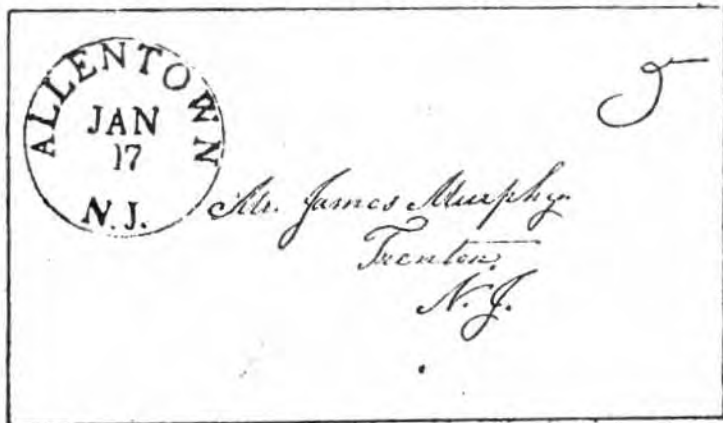 ALLENTOWN
JAN
17
N.J.
5
Mr. James Murphy
Trenton.
N. J.